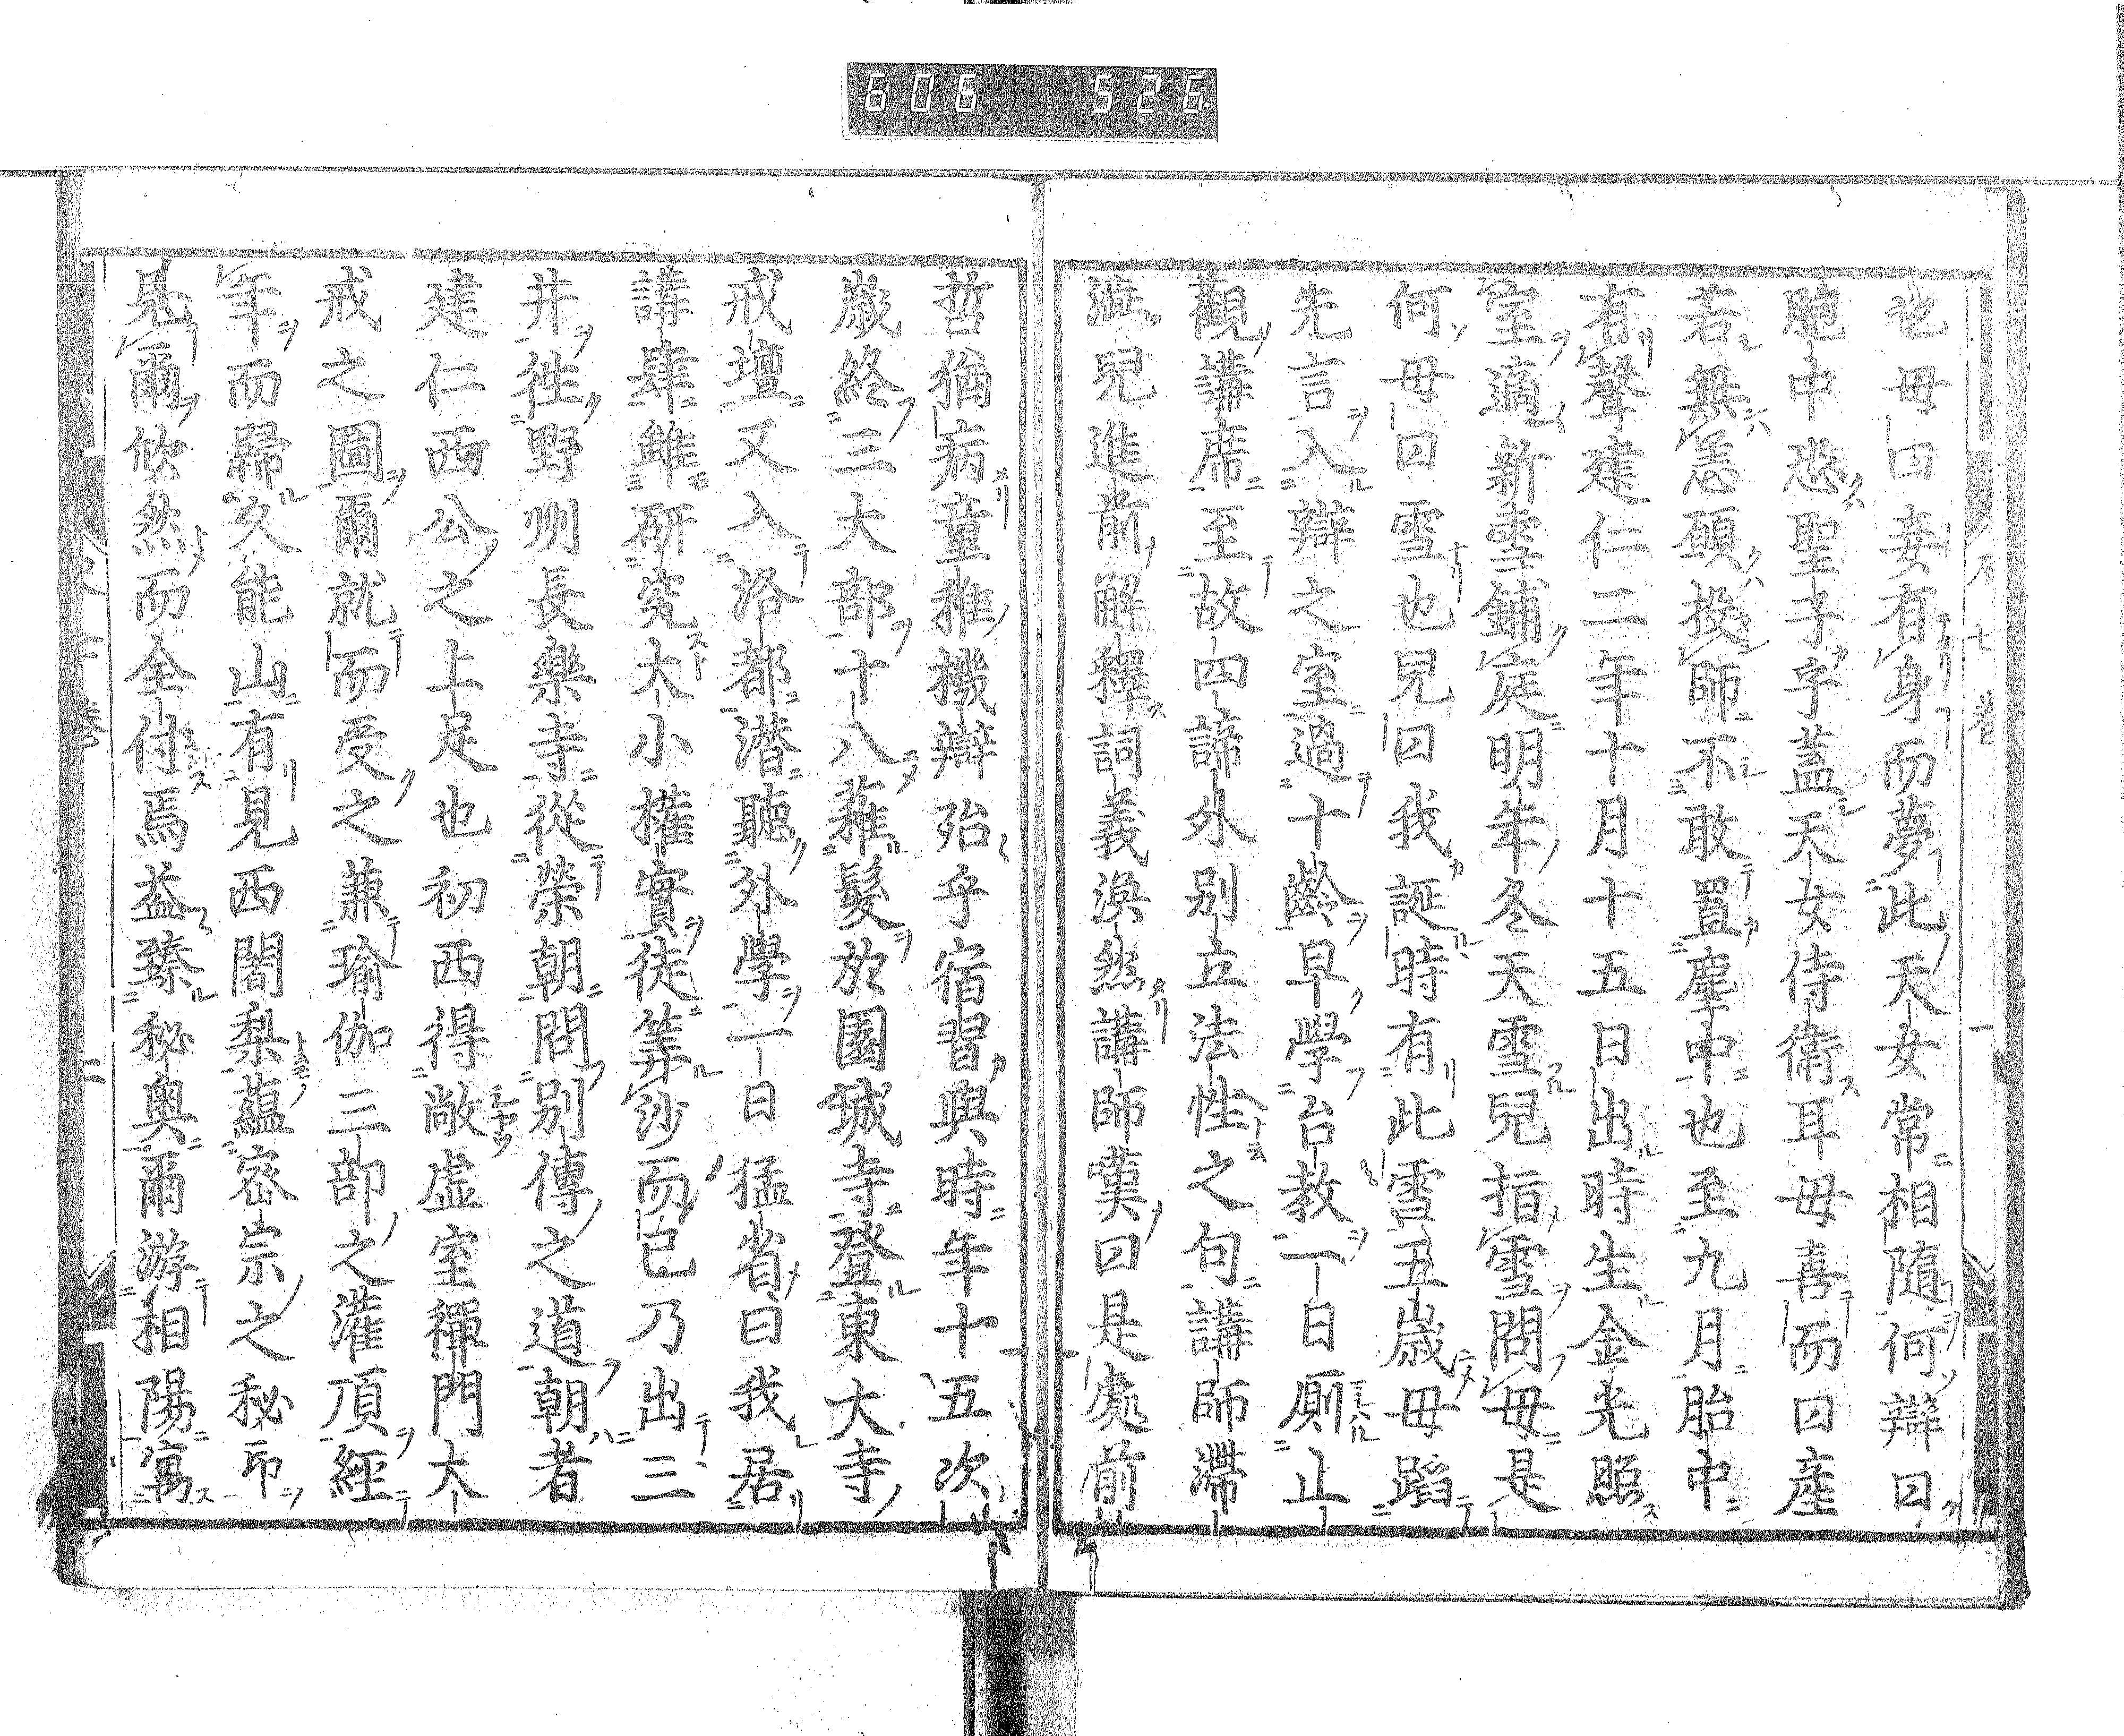 606 526
也母曰妾有身而夢此天女常相隨何辯曰
胞中恐聖子乎蓋天女侍衛耳母喜而曰産
若無恙願投師不敢置塵中也至九月胎中
有聲建仁二年十月十五日出時生金光照
室適新雪鋪庭明年冬天雪兒指雪問母是
何母曰雪也兒曰我誕時有此雪五歲母蹈
先言入辯之室過十齡早學台教一日廁止
觀講席至故四諦外別立法性之句講師滯
澁兒進前解釋詞義渙然講師嘆曰是處前
哲猶病童稚機辯殆乎宿習歟時年十五次
歲終三大部十八薙髮於園城寺登東大寺
戒壇又入洛都潛聽外學一日猛省曰我居
講肆雖研究大小權實徒筭沙而已乃出三
井徃野州長樂寺從榮朝問別傳之道朝者
建仁西公之上足也初西得敞虛室禪門大
戒之圖爾就而受之兼瑜伽三部之灌頂經
年而歸久能山有見西闍梨蘊密宗之秘印
見爾忻然而全付焉益臻秘奧爾游相陽寓